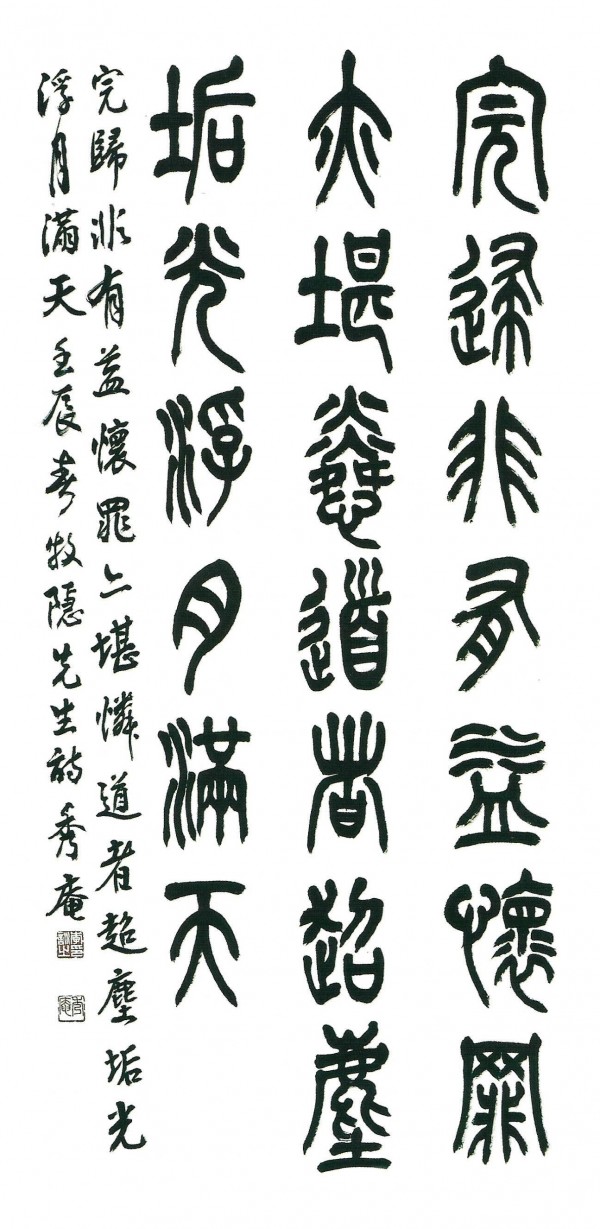 完歸非有益懷罪
亦堪憐道者超塵
垢光浮月滿天
完歸非有益懷罪亦堪憐道者超塵垢光
浮月滿天壬辰春牧隱先生詩秀庵